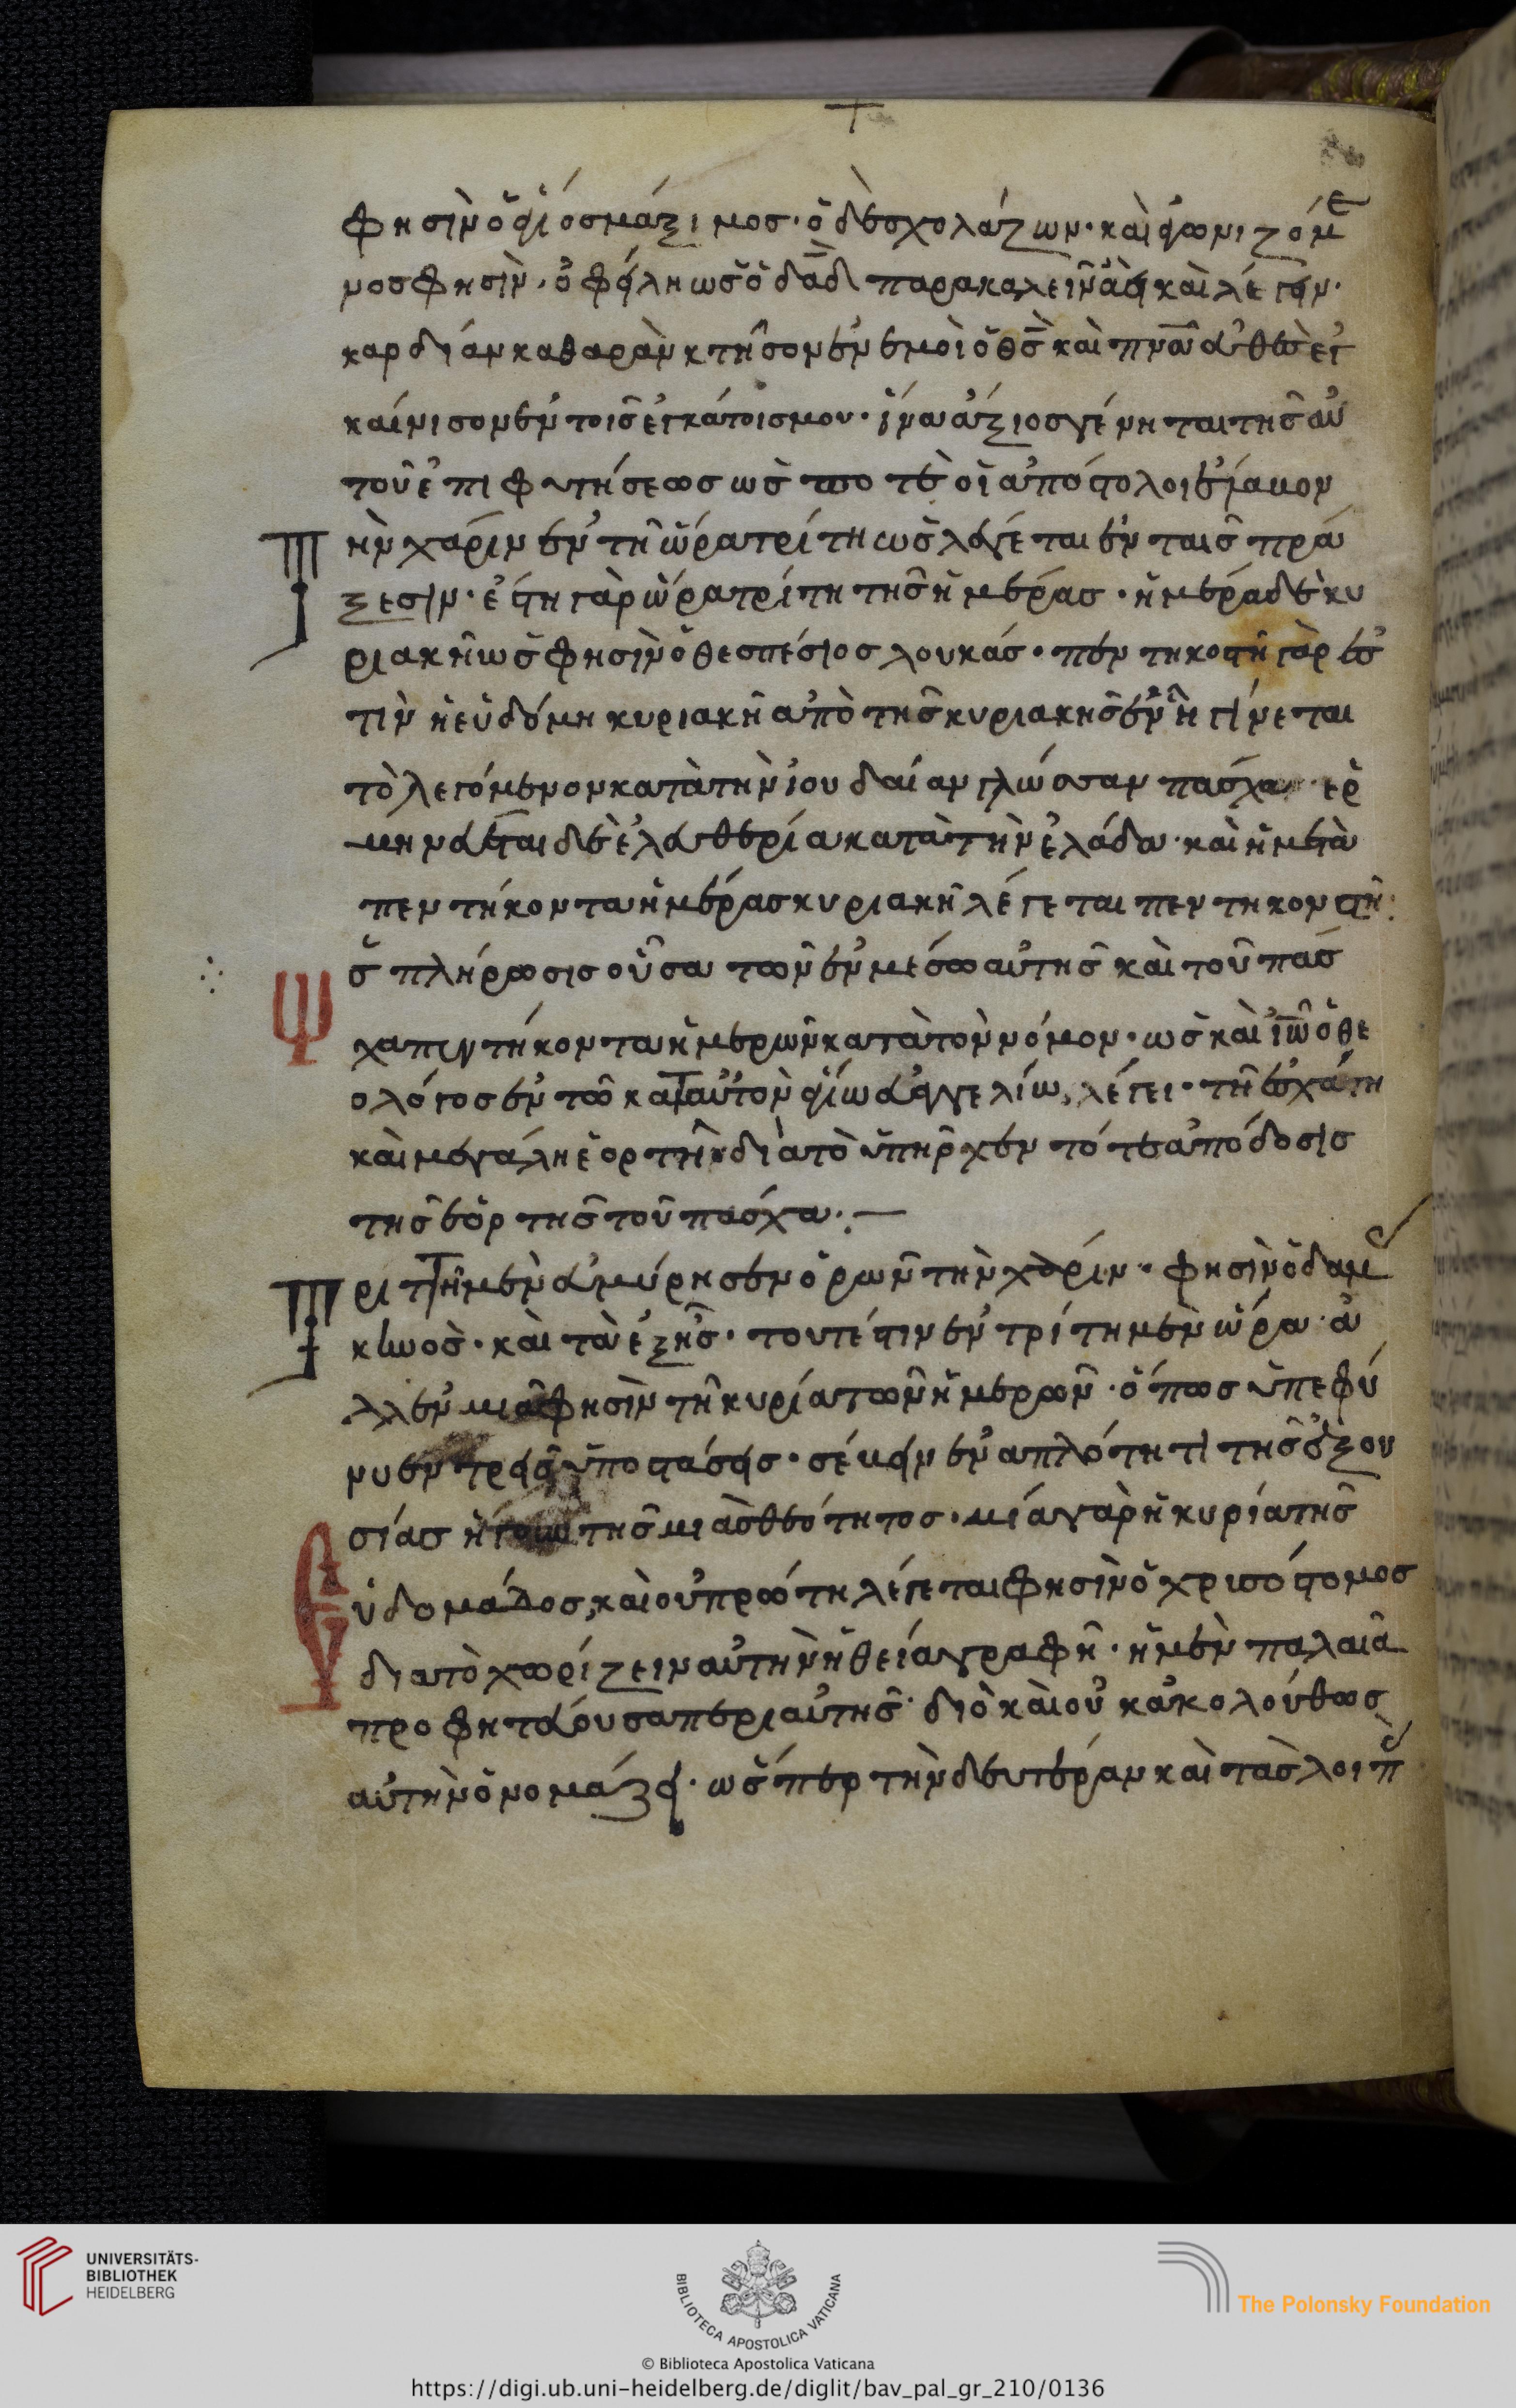 φησὶν ὁ ἅγιος μάξιμος· ὁ δὲ σχολάζων· καὶ ἀγωνιζόμε
νος φησὶν· ὀφείλη ὡς ὁ δαδ παρακαλεῖν ἀεὶ καὶ λέγειν·
καρδίαν καθαρὰν κτῆσον ἐν ἐμοὶ ὁ θς καὶ πνα εὐθὲς ἐγ
καίνισον ἐν τοῖς ἐγκάτοις μου· ἵνα ἄξιος γένηται τῆς αὐ
τοῦ ἐπιφυτήσεως ὡς ποτὲ οἱ ἀπόστολοι
Τ ὴν χάριν ἐν τῆ ὥρα τρίτη ὡς λέγεται ἐν ταῖς πρά
ξεσιν· ἔστη γὰρ ὥρα τρίτη τῆς ἡμέρας· ἡμέρα δὲ κυ
ριακὴ ὡς φησὶν ὁ θεσπέσιος λουκάς· πεντηκοστὴ γὰρ ἐσ
τὶν ἡ εὐδόμη κυριακὴ ἀπὸ τῆς κυριακῆς ἐν ἧ γίνεται
τὸ λεγόμενον κατὰ τὴν ἰουδαίαν γλώσσαν πάσχα ἑρ
μηνεύεται δὲ ἐλευθερία κατὰ τὴν ἐλάδα· καὶ ἡ μετὰ
πεντήκοντα ἡμέρας κυριακὴ λέγεται πεντηκοστή·
Ω ς πλήρωσις οὖσα τῶν ἐν μέσω αὐτῆς καὶ τοῦ πάσ
χα πεντήκοντα ἡμερῶν κατὰ τὸν νόμον· ὡς καὶ ἰω ὁ θε
ολόγος ἐν τῶ κατ αὐτὸν ἁγίω εὐαγγελίω, λέγει· τῆ ἐσχάτη
καὶ μεγάλη ἑορτῆ διατὸ ὑπῆρχεν τότε ἀπόδοσις
τῆς ἑορτῆς τοῦ πάσχα·
Τ ριττὴ μὲν εὐμύρησεν ὁρῶν τὴν χάριν· φησὶν ὁ δαμ
κηνὸς· καὶ τὰ ἑξῆς· τουτέστιν ἐν τρίτη μὲν ὥρα· ἀ
λλ ἐν μιᾶ φησὶν τῆ κυρία τῶν ἡμερῶν· ὅπως ὑπεφύ
νυεν τρεῖς ὑποστάσεις· σέβειν ἐν ἁπλότητι τῆς ἐξου
σίας ἤγουν τῆς μιᾶς θεότητος· μία γὰρ ἡ κυρία τῆς
Ε ὑδομάδος, καὶ οὐ πρώτη λέγεται φησὶν ὁ χρισόστομος
διατὸ χωρίζειν αὐτὴν ἡ θεία γραφὴ· ἡ μὲν παλαιὰ
προφητεύουσα περὶ αὐτῆς· διὸ καὶ οὐκ ἀκολούθως
αὐτὴν ὀνομάζει· ὥσπερ τὴν δευτέραν καὶ τὰς λοιπ
UNIVERSITÄTS-
BIBLIOTHEK
HEIDELBERG
BIBLIOTECA APOSTOLICA VATICANA
The Polonsky Foundation
© Biblioteca Apostolica Vaticana
https://digi.ub.uni-heidelberg.de/diglit/bav_pal_gr_210/0136